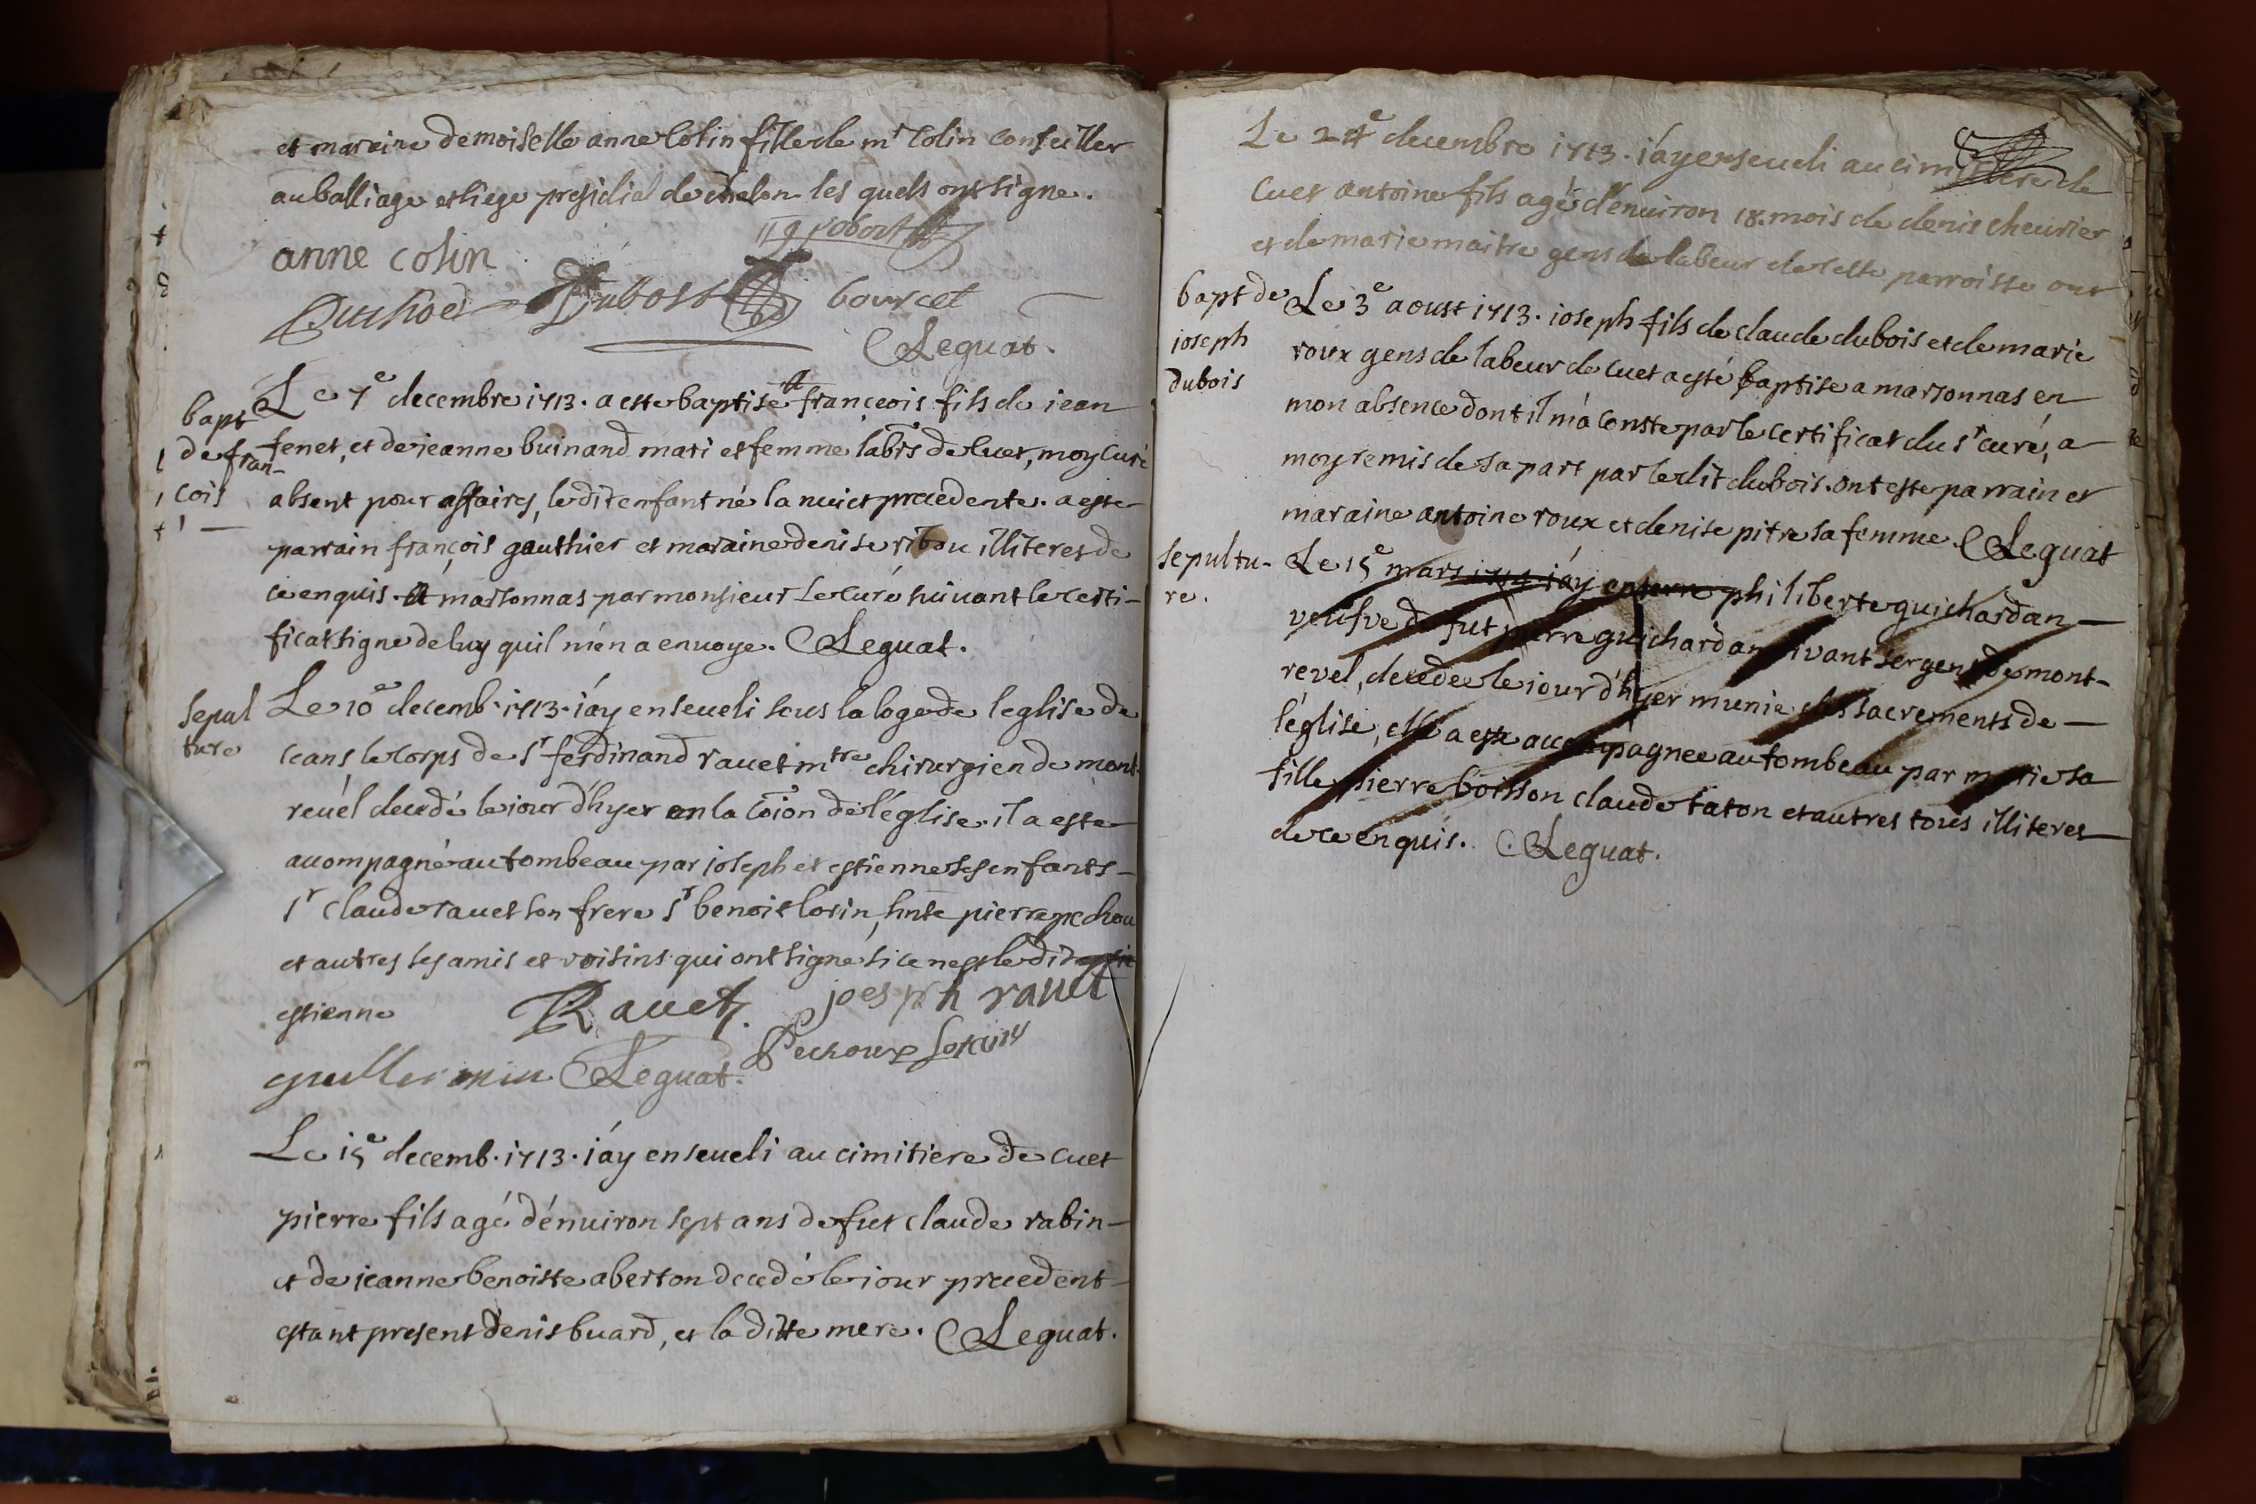 et maraine demoiselle anne Colin fille de mr Colin conseiller
au balliage et siege presidial de chalon les quels ont signe.
anne colin
bourcet
Leguat.
bapt
de fran-
cois
Le 7e decembre 1713. a este baptisé françeois fils de jean
fenet, et de jeanne buinand mari et femme labrs de Cuet, moy curé
absent pour affaires, le dit enfant né la nuict precedente. a este
parrain françois gauthier et maraine denise ribou illiteres de
ce enquis. A marsonnas par monsieur le curé suivant le certi-
ficat signe de luy quil m'en a envoye. Leguat.
sepul
ture
Le 10e decemb. 1713. j'ay enseueli sous la loge de l'eglise de
ceans le corps de sr ferdinand rauet mtre chirurgien de mont-
reuel decedé le jour d'hyer en la coion de l'église. il a este
accompagné au tombeau par joseph et estienne ses enfants
sr claude rauet son frere sr benoit lorin, hnte pierre pechou
et autres ses amis et voisins qui ont signé si ce nest le dit
estienne
Rauet. joesph rauet
Pechoux Lorin
guillermin Leguat.
Le 15e decemb. 1713. j'ay enseueli au cimitiere de cuet
pierre fils agé d'enuiron sept ans de fut claude rabin
et de jeanne benoiste aberton decedé le jour precedent
estant present denis buard, et la ditte mere. Leguat.
Le 24e decembre 1713. j'ay enseueli au cimitiere de
Cuet antoine fils agé d'enuiron 18. mois de denis cheurier
et de marie maitre gens de labeur de cette parroisse
bapt de
joseph
dubois
Le 3e aoust 1713. joseph fils de claude dubois et de marie
roux gens de labeur de cuet a esté baptise a marsonnas en
mon absence dont il m'a conste par le certificat du sr curé, a
moy remis de sa part par ledit dubois. ont este parrain et
maraine antoine roux et denise pitre sa femme. Leguat
sepultu-
re.
Le 15e mars 1714 j'ay enterre philiberte guichardan
veufve de fut pierre guichardan vivant sergent de mont-
revel, decedee le jour d'hyer munie des sacrements de
l'église, elle a este accompagnee au tombeau par marie sa
fille pierre boisson claude taton et autres tous illiteres
de ce enquis. Leguat.